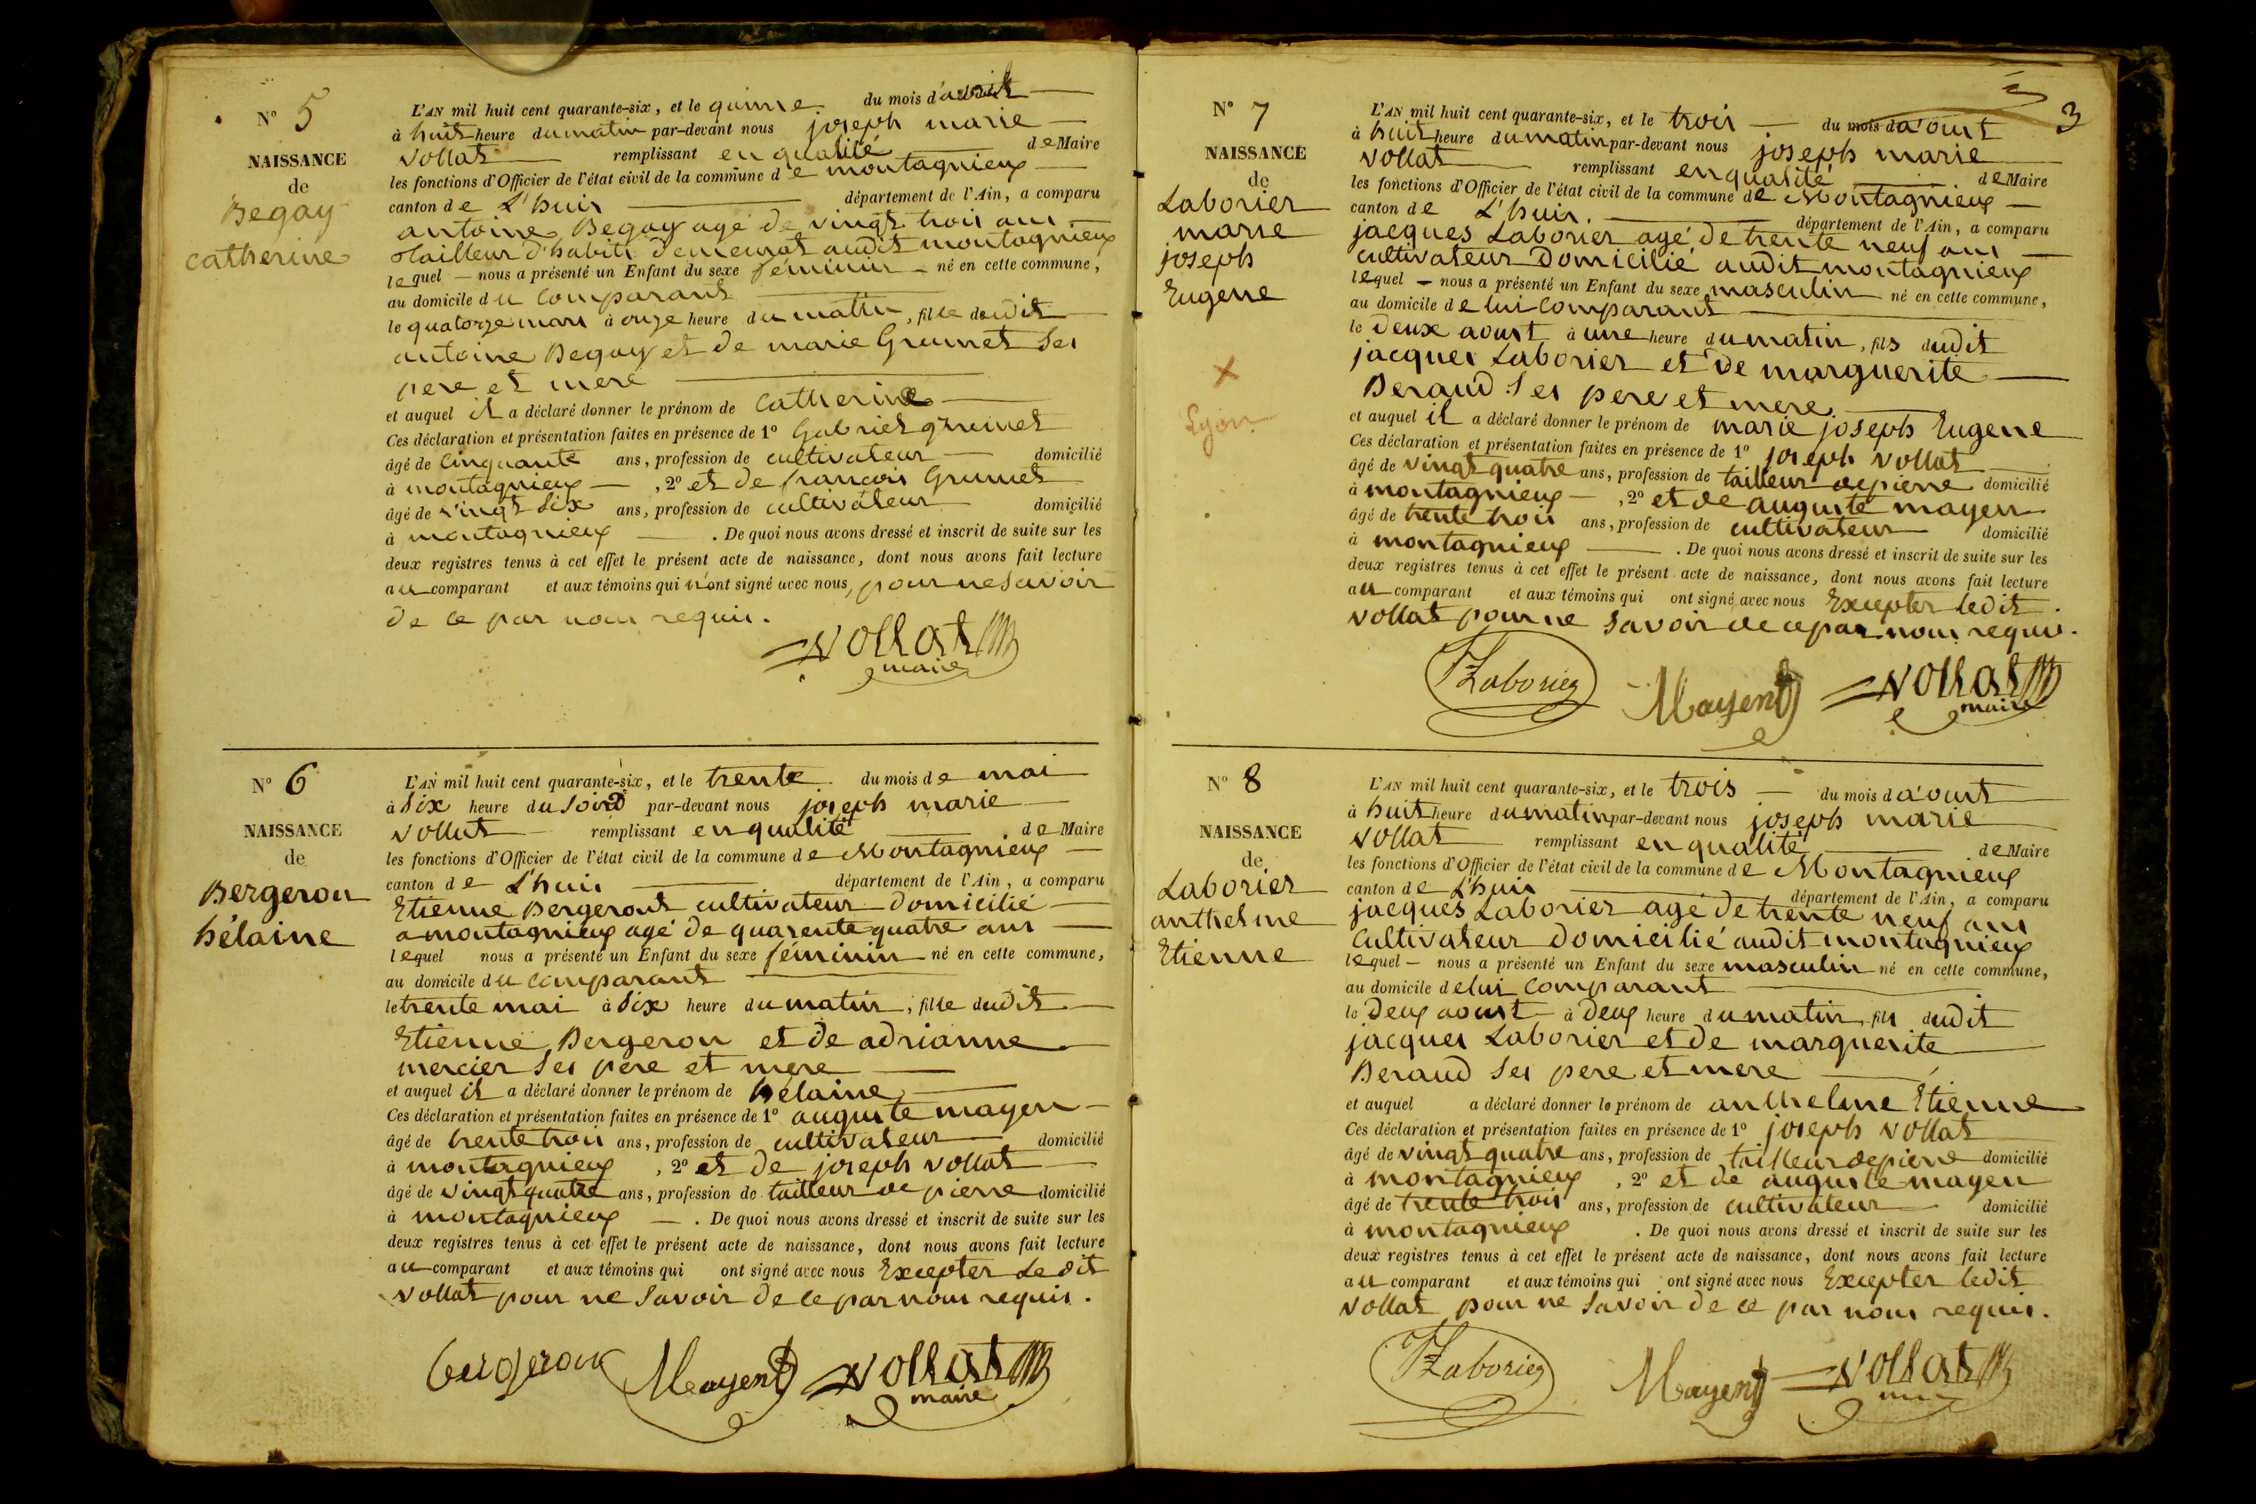 N° 5
NAISSANCE
de
Begay
catherine
L'AN mil huit cent quarante-six, et le quinze du mois d'avril
à huit heure du matin par-devant nous joseph marie
vollat remplissant en qualité de Maire
les fonctions d'Officier de l'état civil de la commune de montagnieux
canton de L'huis département de l'Ain, a comparu
antoine Begay agé de vingt trois ans
tailleur d'habits demeurat audit montagnieux
lequel nous a présenté un Enfant du sexe féminin né en cette commune,
au domicile du comparant
le quatorze mars à onze heure du matin, fille dudit
antoine Begay et de marie Grumet ses
pere et mere
et auquel il a déclaré donner le prénom de catherine
Ces déclaration et présentation faites en présence de 1° Gabriel grumet
âgé de cinquante ans, profession de cultivateur domicilié
à montagnieux, 2° et de francois Grumet
âgé de vingt six ans, profession de cultivateur domicilié
à montagnieux. De quoi nous avons dressé et inscrit de suite sur les
deux registres tenus à cet effet le présent acte de naissance, dont nous avons fait lecture
au comparant et aux témoins qui n'ont signé avec nous, pour ne savoir
de ce par nous requis.
vollat
maire
N° 6
NAISSANCE
de
Bergeron
hélaine
L'AN mil huit cent quarante-six, et le trente du mois de mai
à six heure du soir par-devant nous joseph marie
vollat remplissant en qualité de Maire
les fonctions d'Officier de l'état civil de la commune de Montagnieux
canton de L'huis département de l'Ain, a comparu
Etienne Bergeront cultivateur domicilié
a montagnieux agé de quarente quatre ans
lequel nous a présenté un Enfant du sexe féminin né en cette commune,
au domicile du comparant
le trente mai à six heure du matin, fille dudit
Etienne Bergeron et de adrianne
mercier ses pere et mere
et auquel il a déclaré donner le prénom de hélaine
Ces déclaration et présentation faites en présence de 1° auguste mayen
âgé de trente trois ans, profession de cultivateur domicilié
à montagnieux, 2° et de joseph vollat
âgé de vingt quatre ans, profession de tailleur de pierre domicilié
à montagnieux. De quoi nous avons dressé et inscrit de suite sur les
deux registres tenus à cet effet le présent acte de naissance, dont nous avons fait lecture
au comparant et aux témoins qui ont signé avec nous Excepter Ledit
vollat pour ne savoir de ce par nous requis.
bergeron Mayent vollat
maire
3
N° 7
NAISSANCE
de
Laborier
marie
joseph
Eugene
Lyon
L'AN mil huit cent quarante-six, et le trois du mois d'aoust
à huit heure du matin par-devant nous joseph marie
vollat remplissant en qualité de Maire
les fonctions d'Officier de l'état civil de la commune de Montagnieux
canton de L'huis. département de l'Ain, a comparu
jacques Laborier agé de trente neuf ans
cultivateur Domicilié audit montagnieux
lequel nous a présenté un Enfant du sexe masculin né en cette commune,
au domicile de lui comparant
le deux aoust à une heure du matin, fils dudit
jacques Laborier et de marguerite
Beraud ses pere et mere
et auquel il a déclaré donner le prénom de marie joseph Eugene
Ces déclaration et présentation faites en présence de 1° joseph vollat
âgé de vingt quatre ans, profession de tailleur de pierre domicilié
à montagnieux, 2° et de auguste mayen
âgé de trente trois ans, profession de cultivateur domicilié
à montagnieux. De quoi nous avons dressé et inscrit de suite sur les
deux registres tenus à cet effet le présent acte de naissance, dont nous avons fait lecture
au comparant et aux témoins qui ont signé avec nous Excepter ledit
vollat pour ne savoir de ce par nous requis.
Laborier Mayent vollat
maire
N° 8
NAISSANCE
de
Laborier
anthelme
Etienne
L'AN mil huit cent quarante-six, et le trois du mois d'aoust
à huit heure du matin par-devant nous joseph marie
vollat remplissant en qualité de Maire
les fonctions d'Officier de l'état civil de la commune de Montagnieux
canton de L'huis département de l'Ain, a comparu
jacques Laborier agé de trente neuf ans
cultivateur domicilié audit montagnieux
lequel nous a présenté un Enfant du sexe masculin né en cette commune,
au domicile de lui comparant
le Deux aoust à Deux heure du matin, fils dudit
jacques Laborier et de marguerite
Beraud ses pere et mere
et auquel a déclaré donner le prénom de anthelme Etienne
Ces déclaration et présentation faites en présence de 1° joseph vollat
âgé de vingt quatre ans, profession de tailleur de pierre domicilié
à montagnieux, 2° et de auguste mayen
âgé de trente trois ans, profession de cultivateur domicilié
à montagnieux. De quoi nous avons dressé et inscrit de suite sur les
deux registres tenus à cet effet le présent acte de naissance, dont nous avons fait lecture
au comparant et aux témoins qui ont signé avec nous Excepter ledit
vollat pour ne savoir de ce par nous requis.
Laborier Mayent vollat